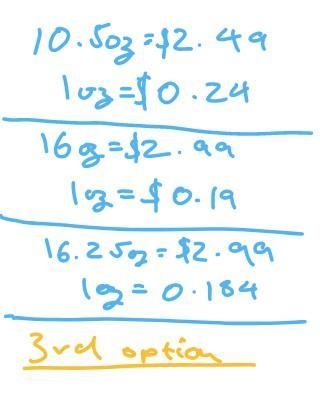 10.5oz=$2.49
1oz=$0.24
16oz=$2.99
1oz=$0.19
16.25oz=$2.99
1oz=0.184
3rd option